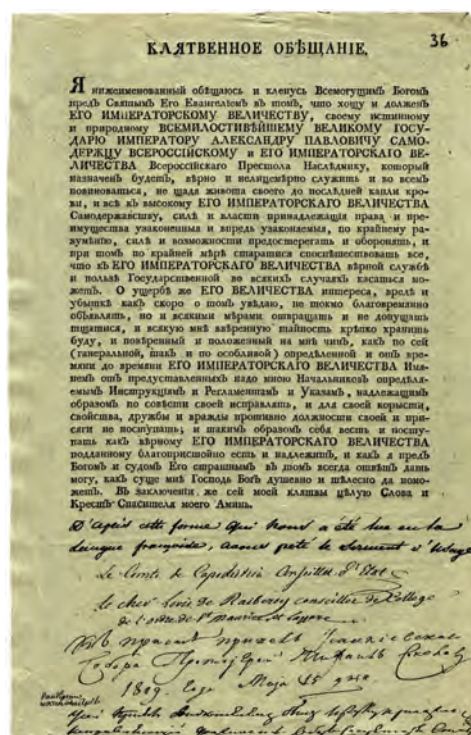 36
КЛЯТВЕННОЕ ОБѢЩАНІЕ.
Я нижеименованный обѣщаюсь и кленусь Всемогущимъ Богомъ
предъ Святымъ Его Евангеліемъ въ томъ, что хощу и долженъ
ЕГО ИМПЕРАТОРСКОМУ ВЕЛИЧЕСТВУ, своему истинному
и природному ВСЕМИЛОСТИВѢЙШЕМУ ВЕЛИКОМУ ГОСУ-
ДАРЮ ИМПЕРАТОРУ АЛЕКСАНДРУ ПАВЛОВИЧУ САМО-
ДЕРЖЦУ ВСЕРОССІЙСКОМУ и ЕГО ИМПЕРАТОРСКАГО ВЕ-
ЛИЧЕСТВА Всероссійскаго Престола Наслѣднику, который
назначенъ будетъ, вѣрно и нелицемѣрно служить и во всемъ
повиноваться, не щадя живота своего до послѣдней капли кро-
ви, и всѣ къ высокому ЕГО ИМПЕРАТОРСКАГО ВЕЛИЧЕСТВА
Самодержавству, силѣ и власти принадлежащія права и пре-
имущества узаконенныя и впредь узаконяемыя, по крайнему ра-
зумѣнію, силѣ и возможности предостерегать и оборонять, и
при томъ по крайней мѣрѣ старатися споспѣшествовать все,
что къ ЕГО ИМПЕРАТОРСКАГО ВЕЛИЧЕСТВА вѣрной службѣ
и пользѣ Государственной во всякихъ случаяхъ касаться мо-
жетъ. О ущербѣ же ЕГО ВЕЛИЧЕСТВА интереса, вредѣ и
убыткѣ какъ скоро о томъ увѣдаю, не токмо благовременно
объявлять, но и всякими мѣрами отвращать и не допущать
тщатися, и всякую мнѣ ввѣренную тайность крѣпко хранить
буду, и повѣренный и положенный на мнѣ чинъ, какъ по сей
(генеральной, такъ и по особливой) опредѣленной и отъ вре-
мяни до времяни ЕГО ИМПЕРАТОРСКАГО ВЕЛИЧЕСТВА Имя-
немъ отъ предуставленныхъ надо мною Начальниковъ опредѣля-
емымъ Инструкціямъ и Регламентамъ и Указамъ, надлежащимъ
образомъ по совѣсти своей исправлять, и для своей корысти,
свойства, дружбы и вражды противно должности своей и при-
сяги не поступать; и такимъ образомъ себя весть и посту-
пать какъ вѣрному ЕГО ИМПЕРАТОРСКАГО ВЕЛИЧЕСТВА
подданному благопристойно есть и надлежитъ, и какъ я предъ
Богомъ и судомъ Его страшнымъ въ томъ всегда отвѣтъ дать
могу, какъ суще мнѣ Господь Богъ душевно и тѣлесно да помо-
жетъ. Въ заключеніи же сей моей клятвы цѣлую Слова и
Крестъ Спасителя моего Аминь.
D'après cette forme qui nous a été lue en la
langue françoise, avons prété le serment d'usage
Le Comte de Capodistria Conseiller d'Etat
le cher Louis de Raiberry conseiller de College
de l'ordre de St Maurice et Lazare
Протоіерей
1809. Года Маія 15 дня